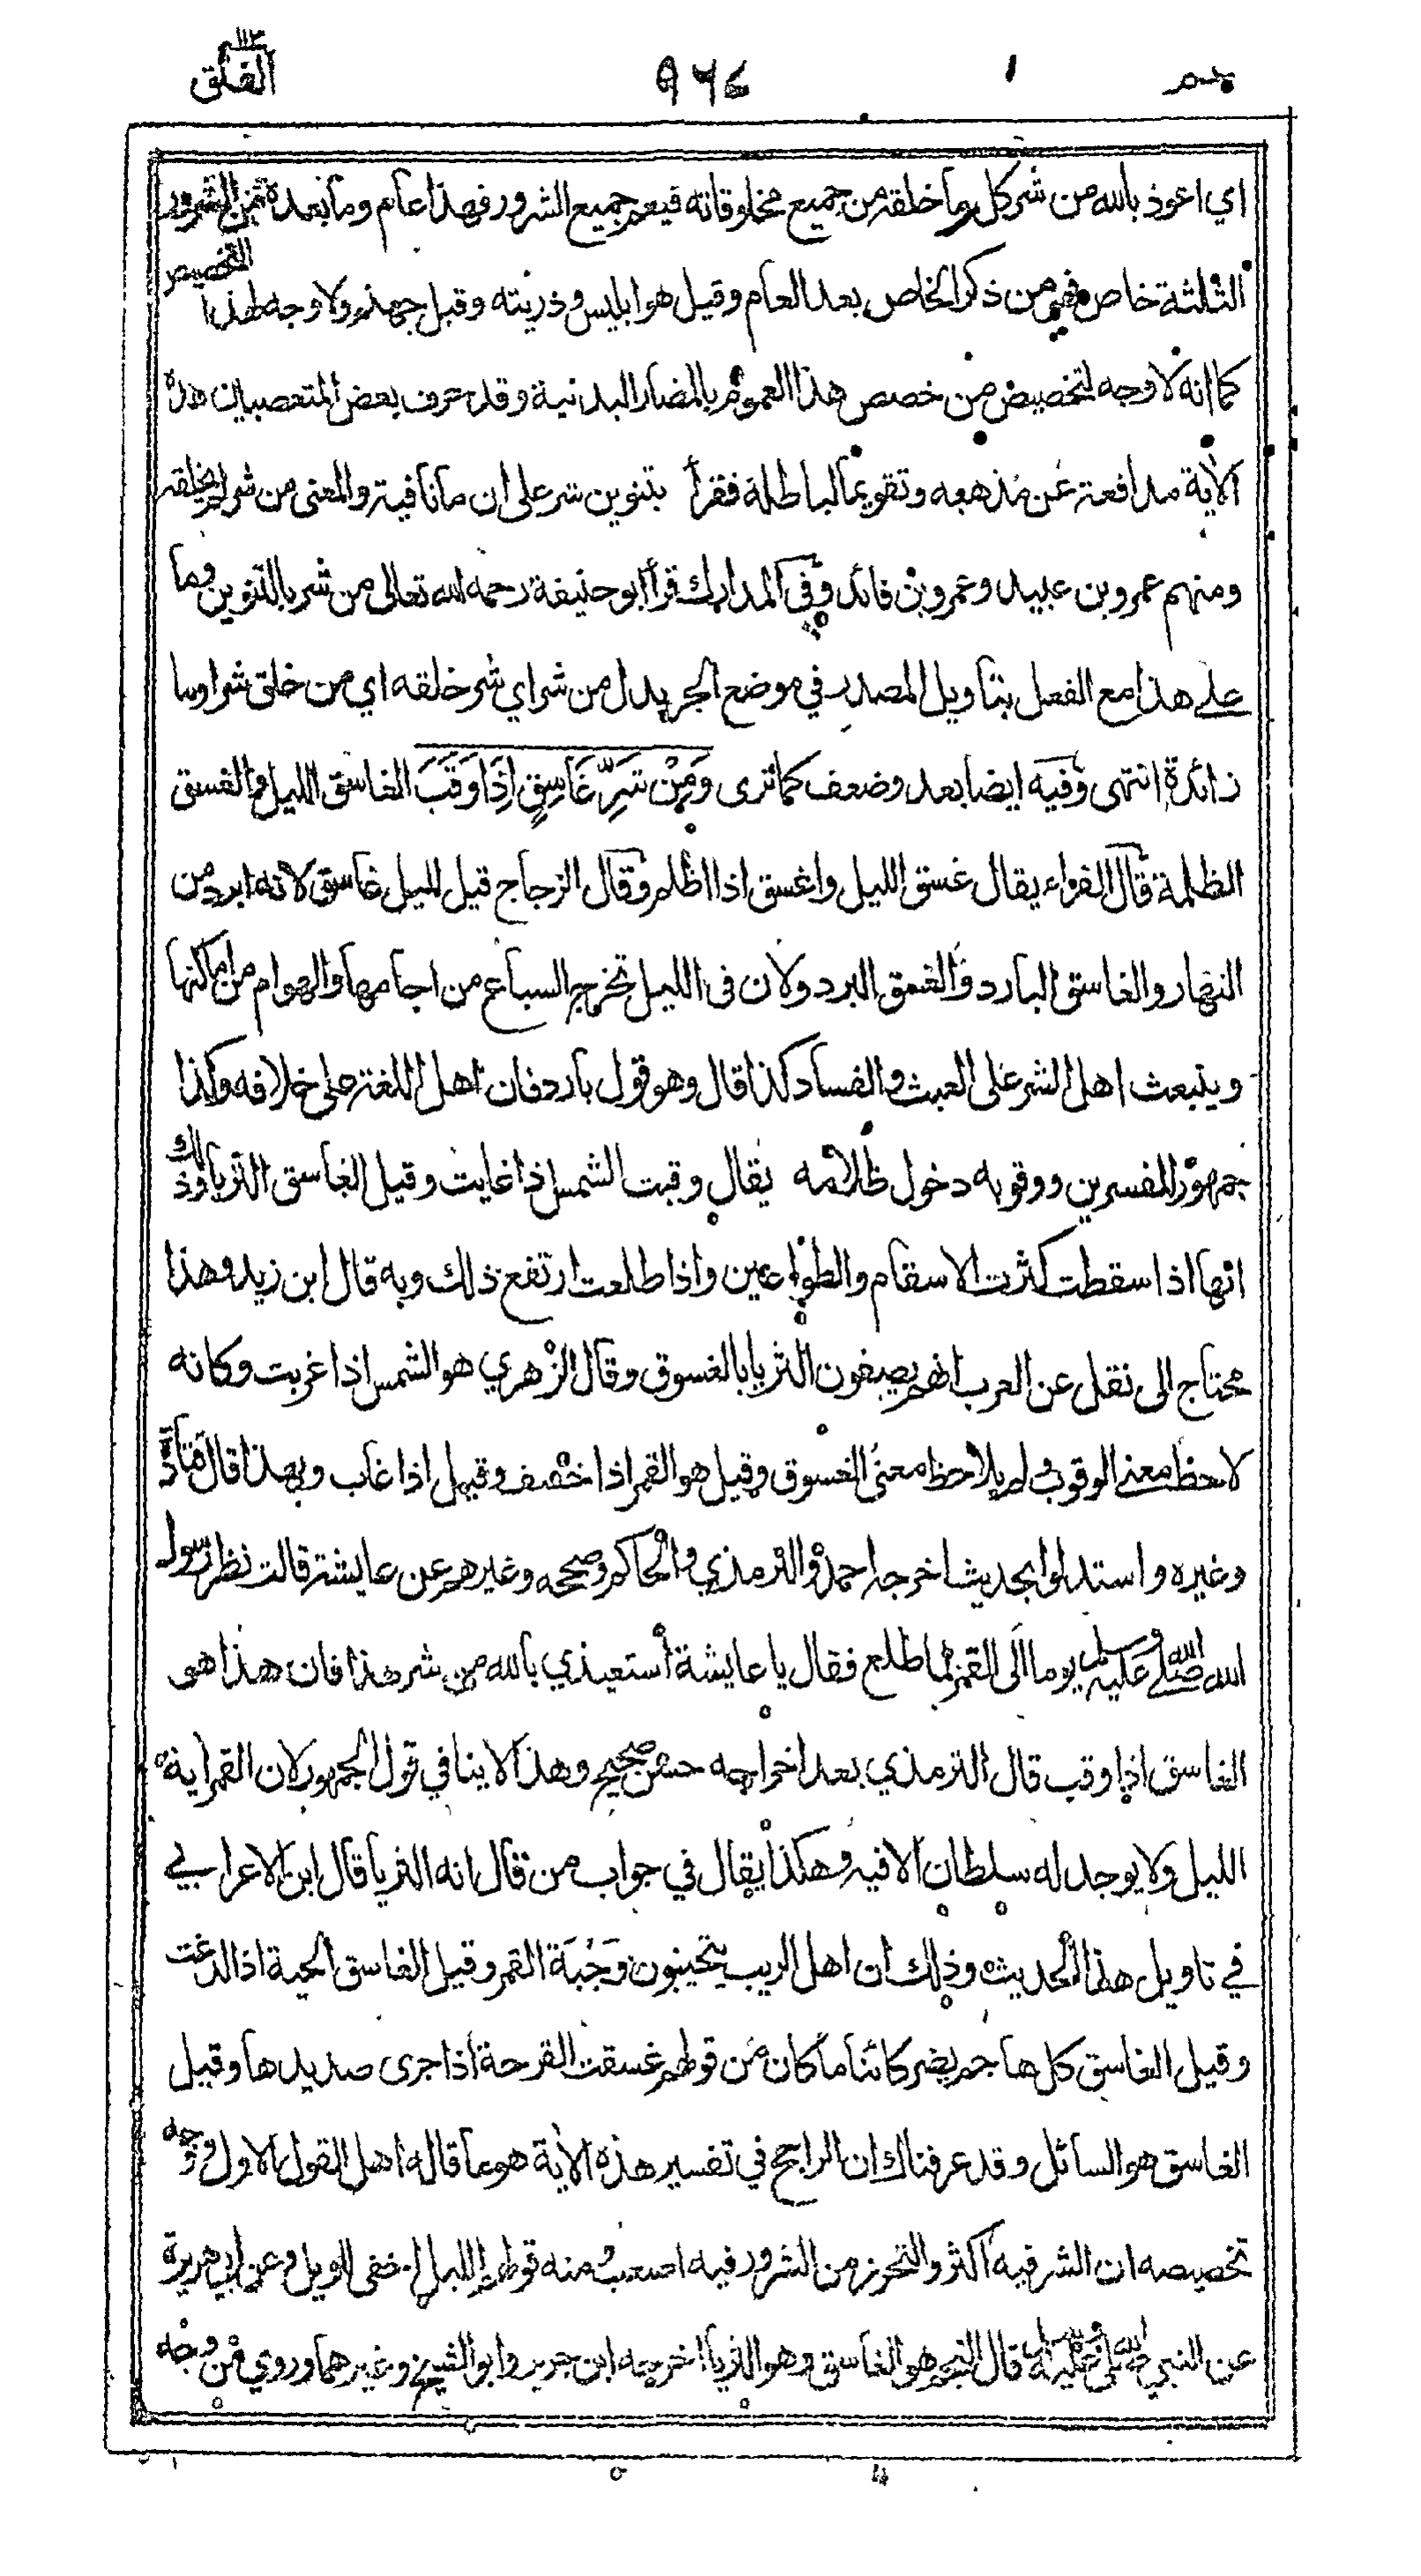 عم ١ ٩٦٤ الفلق ١١٣
اي اعوذ بالله من شر كل ما خلقه من جميع مخلوقاته فيعم جميع الشرور فهذا عام وما بعده من الشرور
الثلثة خاص فهو من ذكر الخاص بعد العام وقيل هو ابليس وذريته وقيل جهنم ولا وجه لهذا التخصيص
كما انه لا وجه لتخصيص من خصص هذا العموم بالمضار البدنية وقد حرف بعض المتعصبين هذه
الآية مدافعة عن مذهبه وتقويما لباطله فقرأ بتنوين شر على ان ما نافية والمعنى من شر لم يخلقه
ومنهم عمرو بن عبيد وعمرو بن فائد وفي المدارك قرأ ابو حنيفة رحمه الله تعالى من شر بالتنوين وما
على هذا مع الفعل بتأويل المصدر في موضع الجر بدل من شر اي شر خلقه اي من خلق شر او ما
زائدة انتهى وفيه ايضا بعد وضعف كما ترى وَمِنْ شَرِّ غَاسِقٍ اِذَا وَقَبَ الغاسق الليل والغسق
الظلمة قال الفراء يقال غسق الليل واغسق اذا اظلم وقال الزجاج قيل لليل غاسق لانه ابرد من
النهار والغاسق البارد والغسق البرد ولان فى الليل تخرج السباع من اجامها والهوام من اماكنها
وينبعث اهل الشر على العبث والفساد كذا قال وهو قول بارد فان اهل اللغة على خلافه وكذا
جمهور المفسرين ووقوبه دخول ظلامه يقال وقبت الشمس اذا غابت وقيل الغاسق الثريا وذلك
انها اذا سقطت كثرت الاسقام والطواعين واذا طلعت ارتفع ذلك وبه قال ابن زيد وهذا
محتاج الى نقل عن العرب انهم يصفون الثريا بالغسوق وقال الزهري هو الشمس اذا غربت وكانه
لاحظ معنى الوقوب ولم يلاحظ معنى الغسوق وقيل هو القمر اذا خسف وقيل اذا غاب وبهذا قال قتادة
وغيره واستدلوا بحديث اخرجه احمد والترمذي والحاكم وصححه وغيرهم عن عايشة قالت نظر رسول
الله صلى الله عليه وسلم يوما الى القمر لما طلع فقال يا عايشة أستعيذي بالله من شر هذا فان هذا هو
الغاسق اذا وقب قال الترمذي بعد اخراجه حسن صحيح وهذا لا ينافي قول الجمهور لان القمر آية
الليل ولا يوجد له سلطان الا فيه وهكذا يقال في جواب من قال انه الثريا قال ابن الاعرابي
في تاويل هذا الحديث وذلك ان اهل الريب يتحينون وَجْبَة القمر وقيل الغاسق الحية اذا لدغت
وقيل الغاسق كل هاجم يضر كائنا ما كان من قولهم غسقت القرحة اذا جرى صديدها وقيل
الغاسق هو السائل وقد عرفناك ان الراجح في تفسير هذه الآية هو ما قاله اهل القول الاول ووجه
تخصيصه ان الشر فيه اكثر والتحرز من الشرور فيه اصعب ومنه قولهم الليل اخفى للويل وعن ابي هريرة
عن النبي صلى الله عليه وسلم قال النجم هو الغاسق وهو الثريا اخرجه ابن جرير وابو الشيخ وغيرهما وروي من وجه